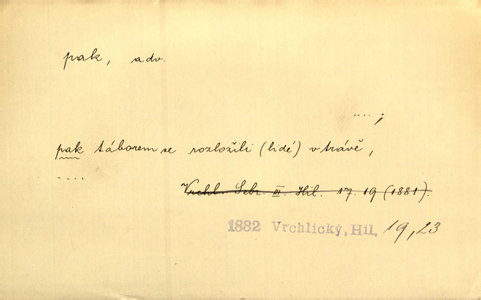 pak, adv.
....;
pak táborem se rozložili (lidé) v trávě,
....
Vrchl. Sebr. III Hil. 17. 19 (1881).
1882 Vrchlický, Hil. 19,23